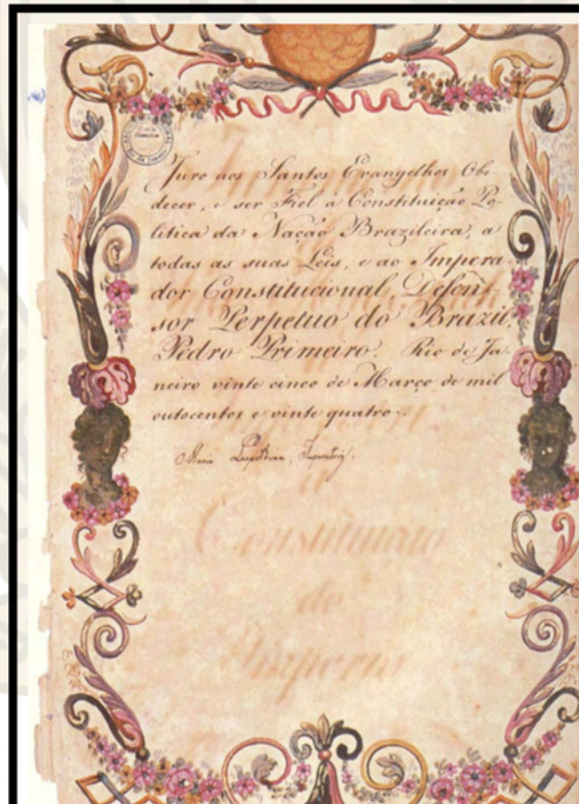 Juro aos Santos Evangelhos Obe-
decer, e ser Fiel à Constituição Po-
litica da Nação Brazileira, a
todas as suas Leis, e ao Impera-
dor Constitucional, Defen-
sor Perpetuo do Brazil,
Pedro Primeiro. Rio de Ja-
neiro vinte cinco de Março de mil
outocentos e vinte quatro.
Maria Leopoldina, Imperatriz.
Constituição
do
Imperio